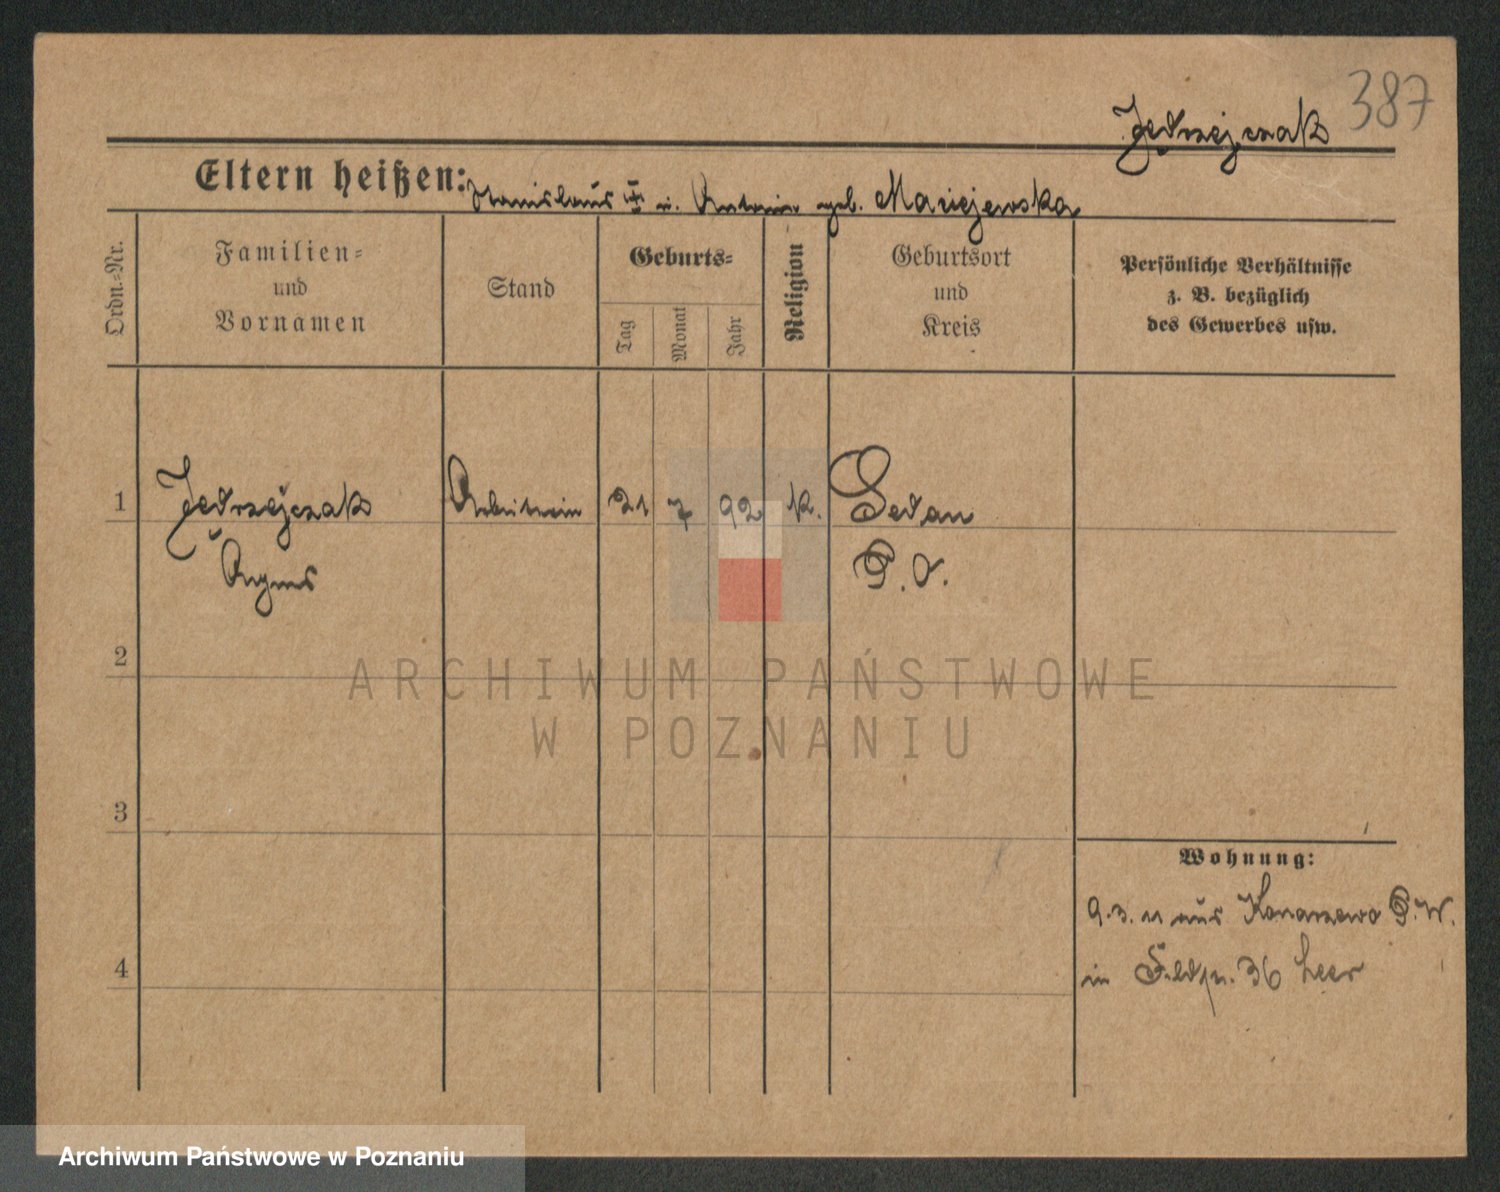 387
Jedrzejczak
Eltern heißen: Stanislaus u. Antonie geb. Maciejewska
Ordn.-Nr.
Familien-
und
Vornamen
Stand
Geburts-
Tag
Monat
Jahr
Religion
Geburtsort
und
Kreis
Persönliche Verhältnisse
z. B. bezüglich
des Gewerbes usw.
1 Jedrzejczak Arbeiterin 21 7 92 k. Sedan
Agnes P. O.
2
ARCHIWUM PAŃSTWOWE
W POZNANIU
3
Wohnung:
9.3. 11 aus Konarzewo P. W.
4
in Feldstr. 36 Leer
Archiwum Państwowe w Poznaniu